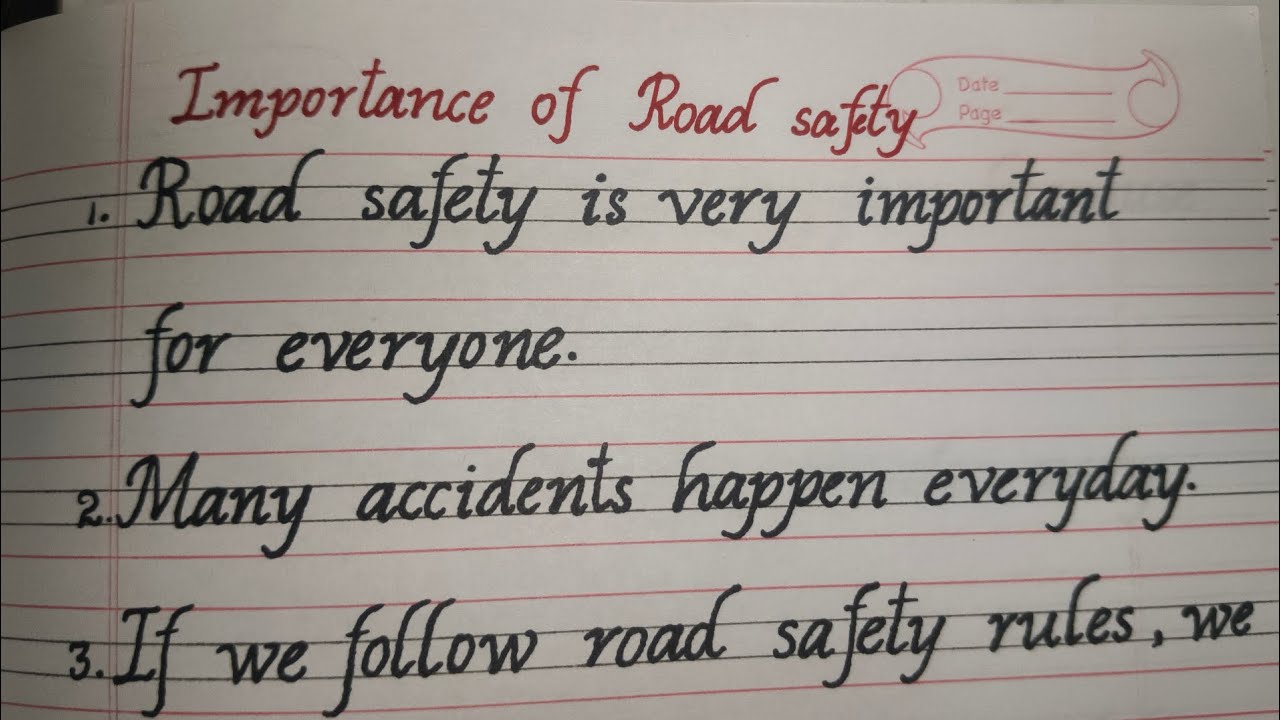 Importance of Road safety
Date
Page
1. Road safety is very important
for everyone.
2. Many accidents happen everyday.
3. If we follow road safety rules, we